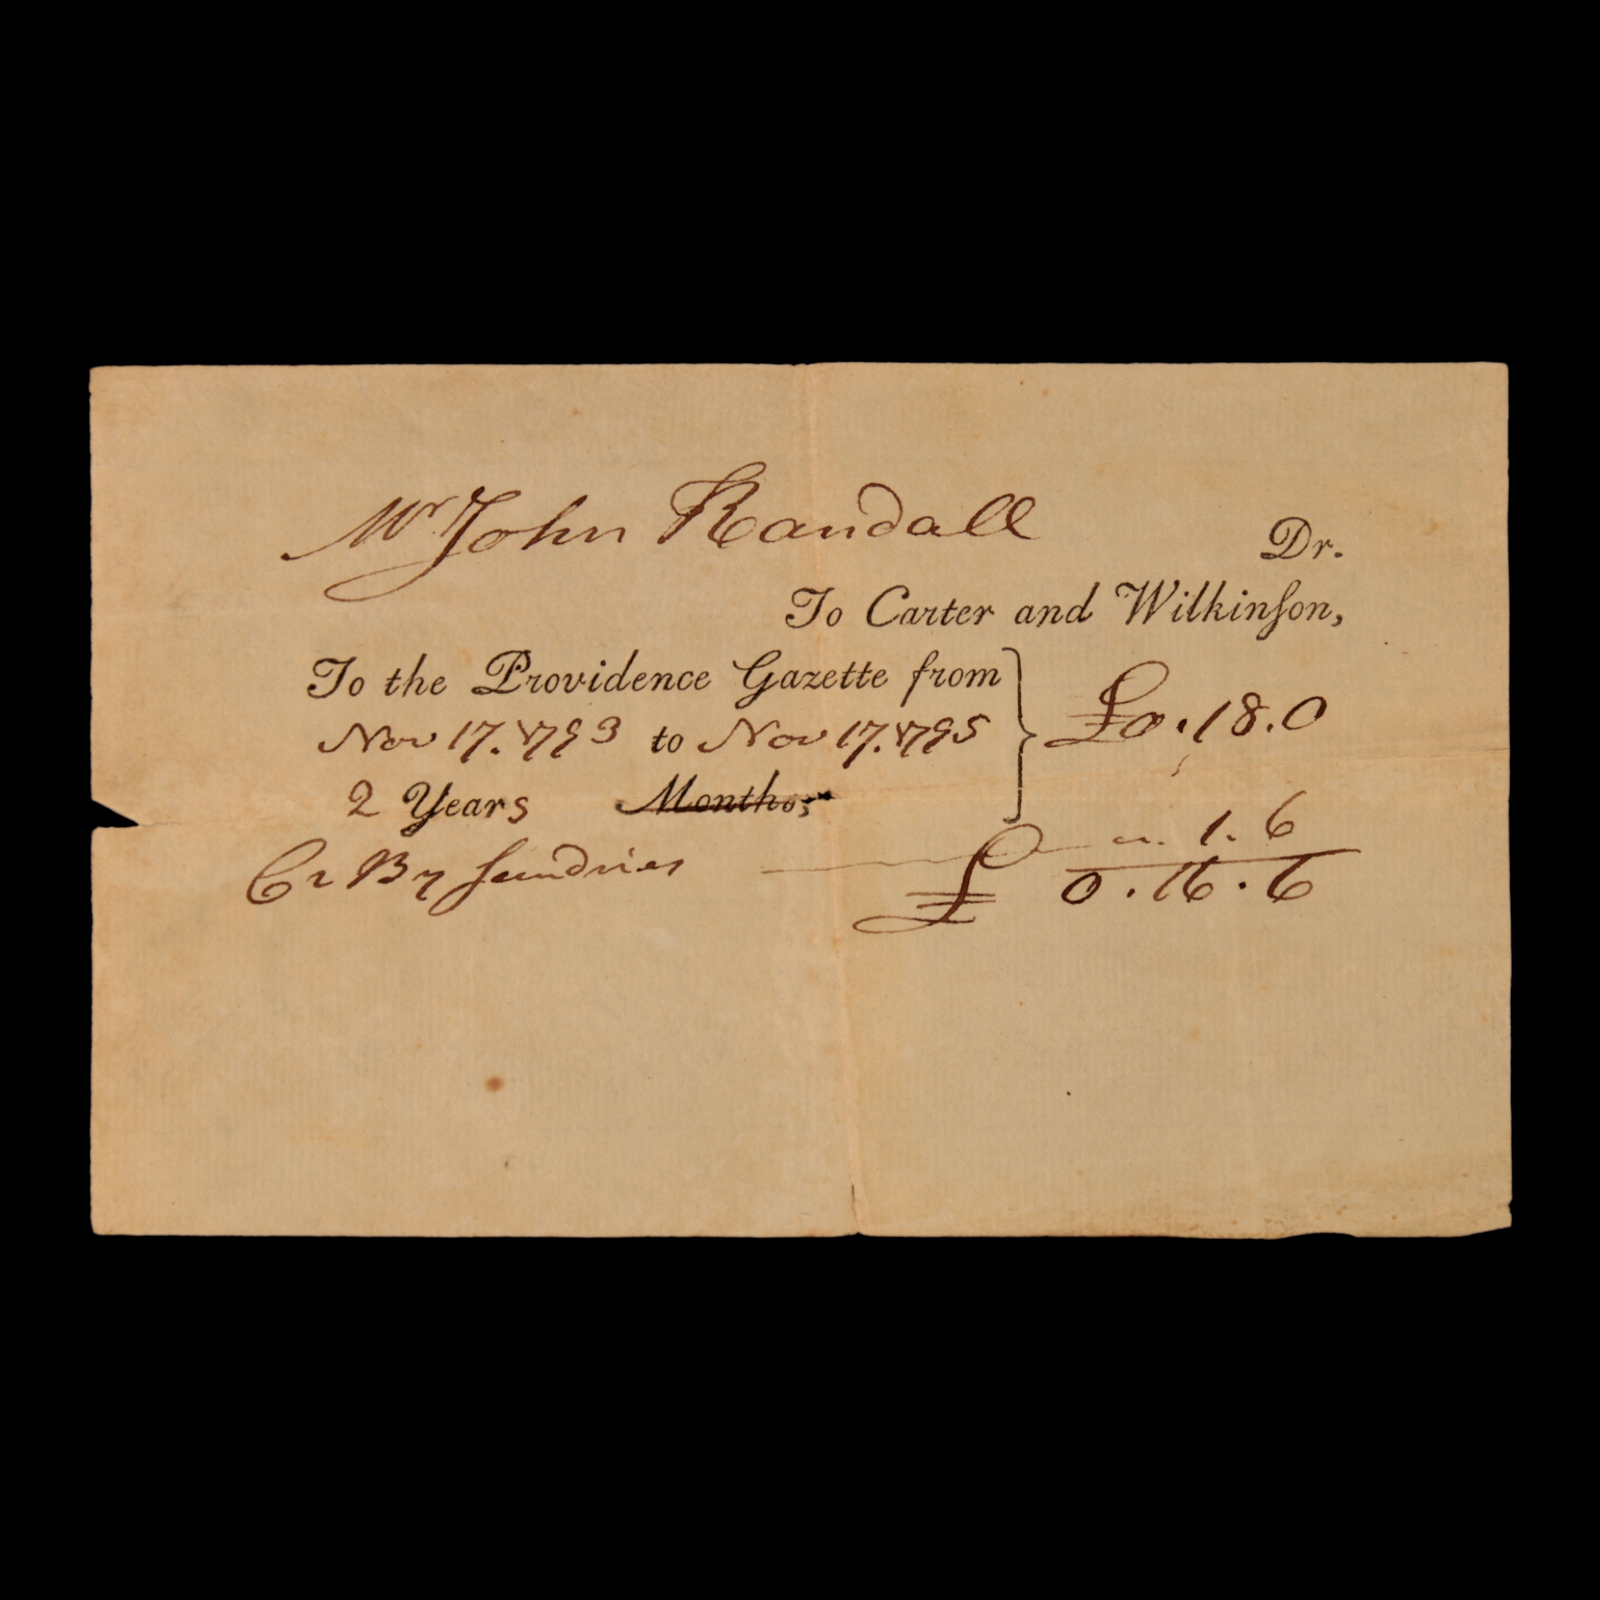 Mr John Randall
Dr.
To Carter and Wilkinſon,
To the Providence Gazette from
Nov 17. 1793 to Nov 17. 1795
£0.18.0
2 Years Months,
Cr By Sundries 1.6
£ 0.16.6